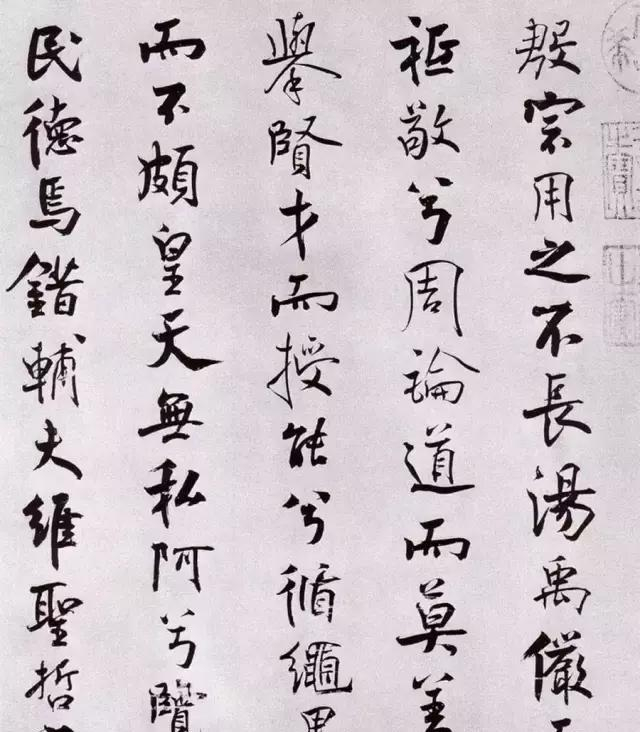 殷宗用之不長湯禹儼
祗敬兮周論道而莫差
舉賢才而授能兮循繩
而不頗皇天無私阿兮覽
民德焉錯輔夫維聖哲